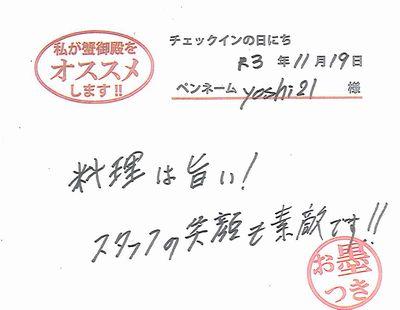 私が蟹御殿を
オススメ
します!!
チェックインの日にち
R3 年 11 月 19 日
ペンネーム yoshi21 様
料理は旨い!
スタッフの笑顔も素敵です!!
お墨
つき